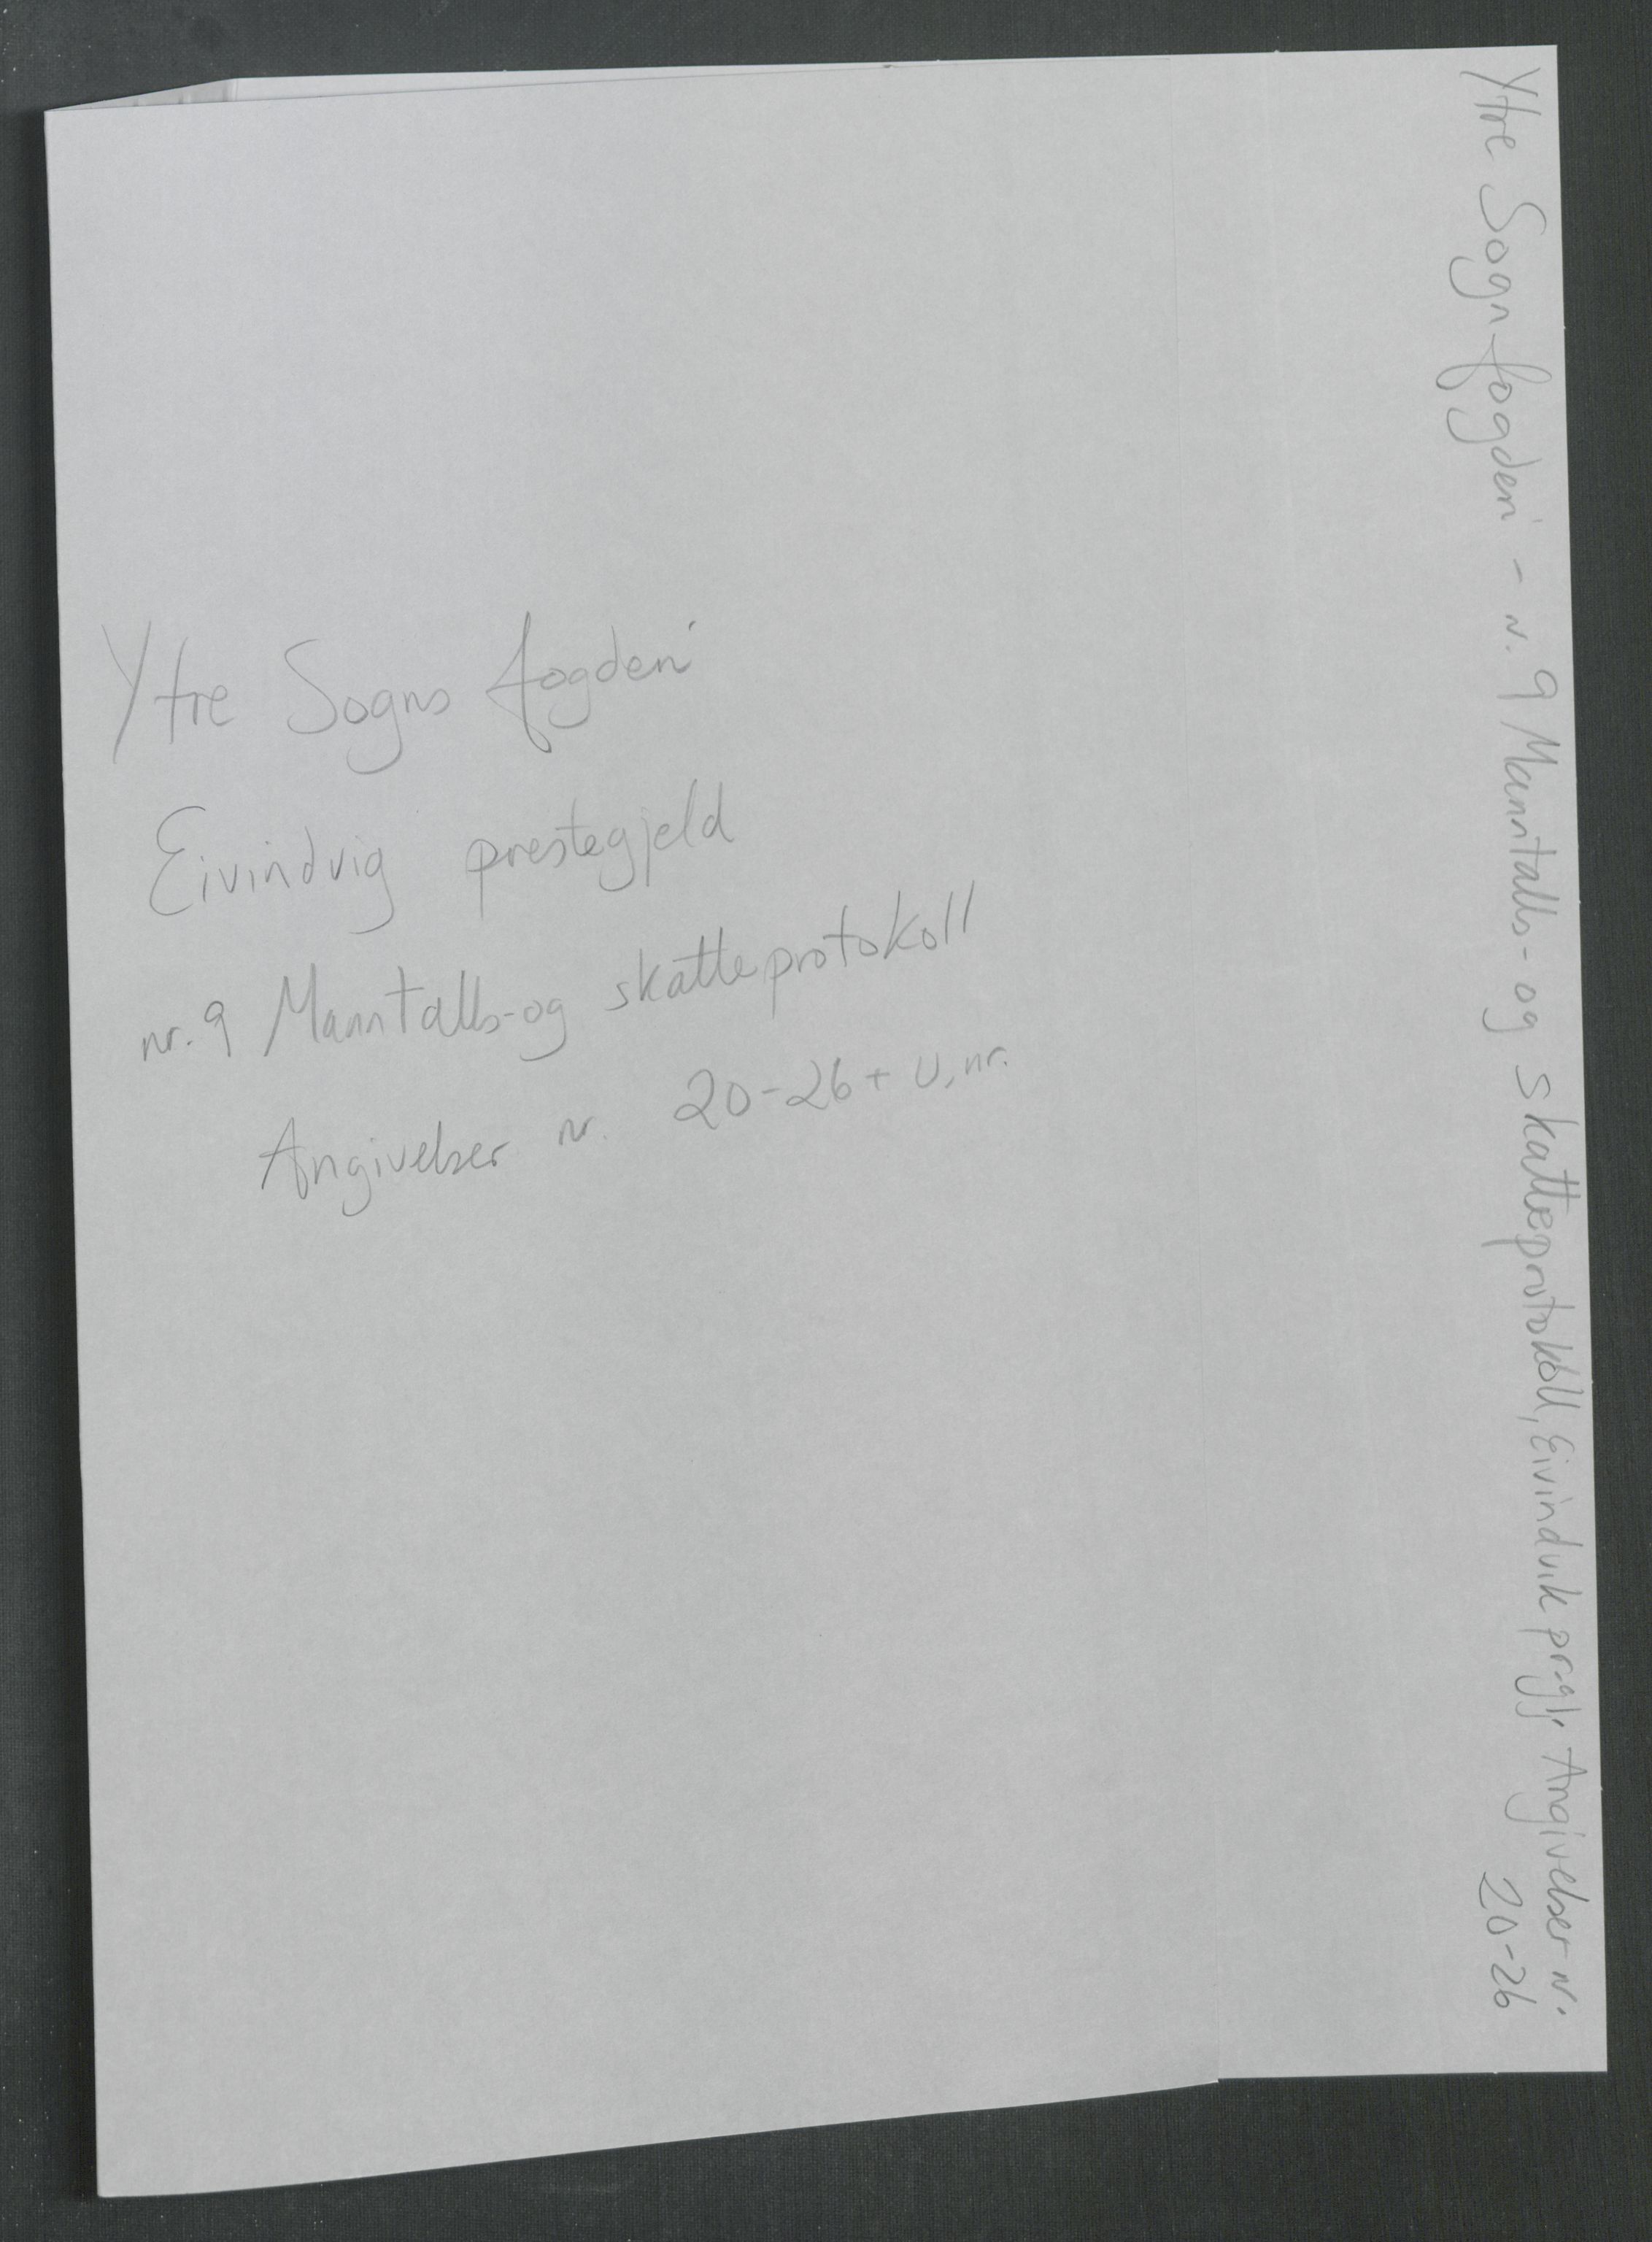 Ytre Sogns fogderi
Eivindvig prestegjeld
nr. 9 Manntalls-og skatteprotokoll
Angivelser nr. 20-26 + u, nr.
Ytre Sogn fogderi - nr. 9 Manntalls- og skatteprotokoll, Eivindvik prgj. Angivelser nr.
20-26